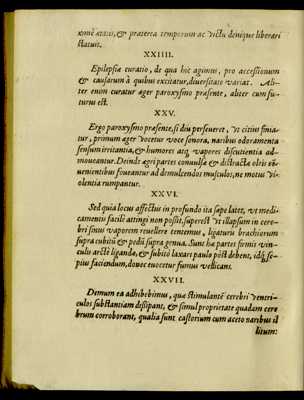 tione ætatis, & præterea temporum ac victu denique liberari
statuit.
XXIIII.
Epilepsiæ curatio, de qua hoc agimus, pro accessionum
& causarum à quibus excitatur, diversitate variat. Ali-
ter enim curatur æger paroxysmo præsente, aliter cum fu-
turus est.
XXV.
Ergo paroxysmo præsente, si diu perseveret, vt citius finia-
tur, primum æger vocetur voce sonora, naribus odoramenta
sensum irritantia, & humores atq; vapores discutientia ad-
moueantur. Deinde ægri partes conuulsæ & distractæ oleis co-
uenientibus foueantur ad demulcendos musculos, ne motus vi-
olentia rumpantur.
XXVI.
Sed quia locus affectus in profundo ita sæpe latet, vt medi-
camentis facilè attingi non possit, superest vt illapsum in cere-
bri sinus vaporem reuellere tentemus, ligaturis brachiorum
supra cubitū & pedū supra genua. Sunt hæ partes firmis vin-
culis arctè ligandæ, & subitò laxari paulo pòst debent, idq; sæ-
pius faciendum, donec euocetur fumus vellicans.
XXVII.
Demum ea adhibebimus, quæ stimulantē cerebri ventri-
culos substantiam dissipant, & simul proprietate quadam cere
brum corroborant, qualia sunt castorium cum aceto naribus il
litum: